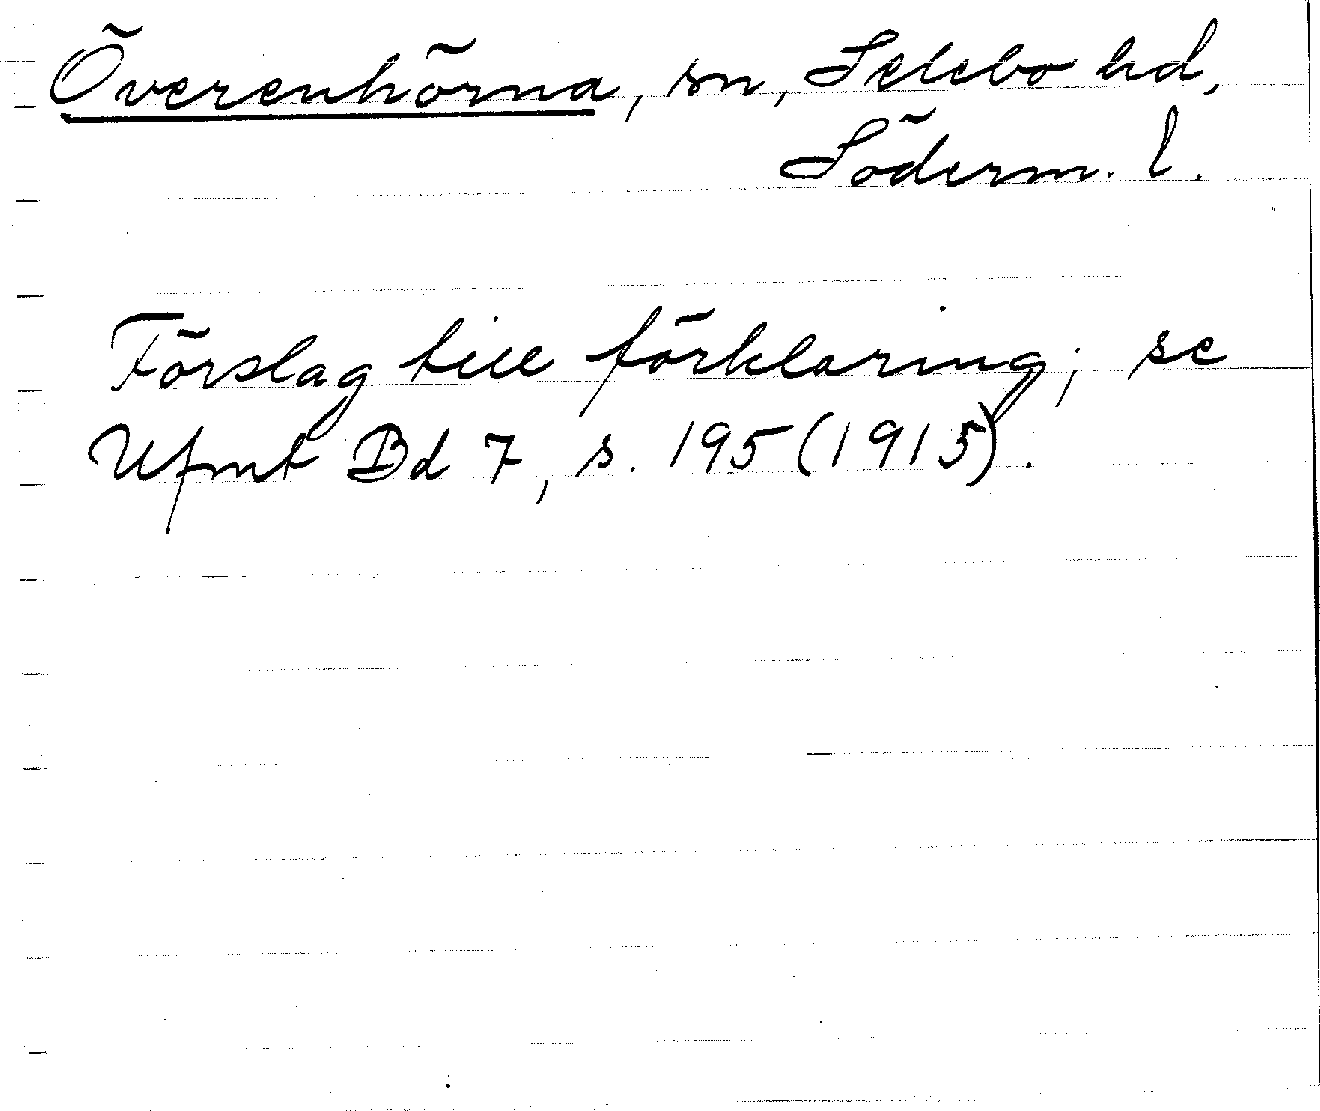 Överenhörna, sn, Selebo hd,
Söderm. l.
Förslag till förklaring; se
Ufmt Bd 7, s. 195 (1915).